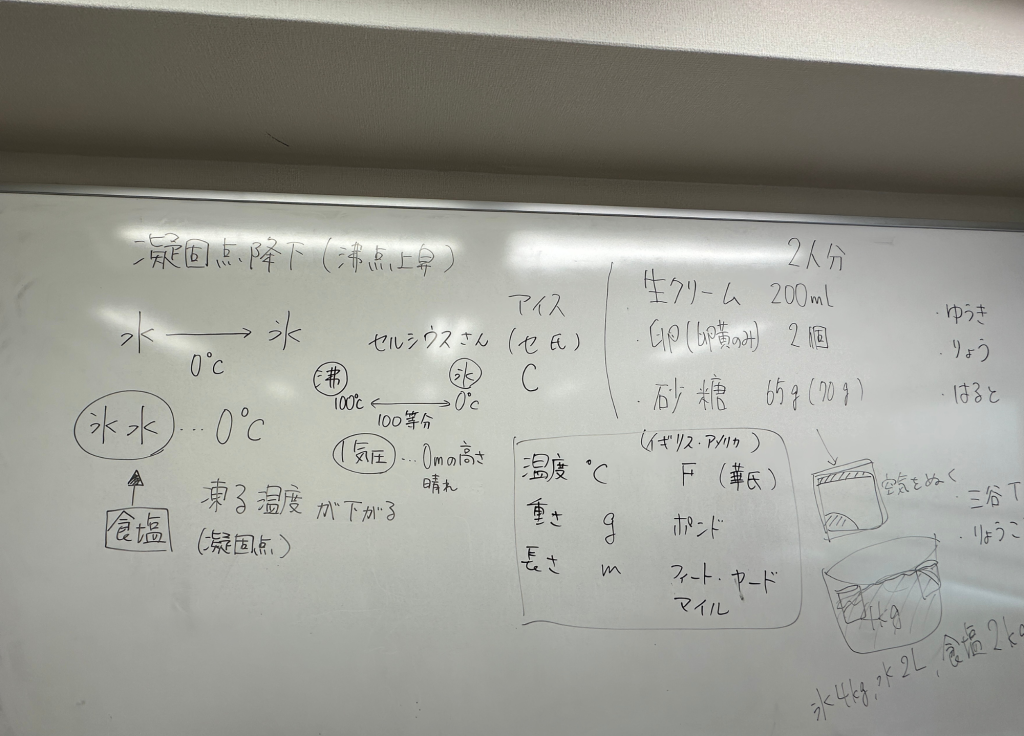 凝固点降下(沸点上昇)
水 → 氷
0℃
氷水…0℃
食塩
凍る温度が下がる
(凝固点)
アイス
セルシウスさん(セ氏)
C
沸 氷
100℃ ←→ 0℃
100等分
1気圧…0mの高さ
晴れ
2人分
生クリーム 200ml
・卵(卵黄のみ) 2個
・砂糖 65g(70g)
・ゆうき
・りょう
・はると
(イギリス・アメリカ)
温度 ℃ F(華氏)
重さ g ポンド
長さ m フィート・ヤード
マイル
空気をぬく
・三谷T
・りょうこ
4kg
氷4kg,水2L,食塩2kg